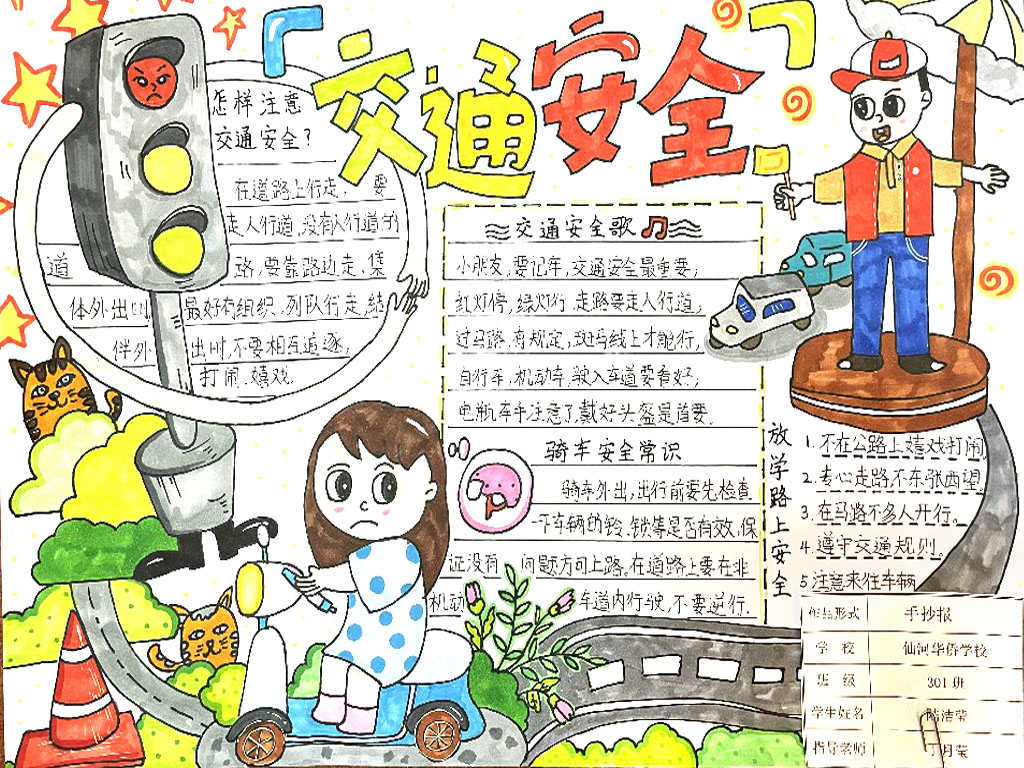 「交通安全」
怎样注意
交通安全？
在道路上行走， 要
走人行道，没有人行道的
道 路，要靠路边走，集
体外出时 最好有组织，列队行走，结
伴外 出时，不要相互追逐，
打闹、嬉戏．
交通安全歌
小朋友，要记牢，交通安全最重要；
红灯停，绿灯行，走路要走人行道；
过马路，有规定，斑马线上才能行，
自行车，机动车，驶入车道要看好；
电瓶车手注意了戴好头盔是首要．
骑车安全常识
骑车外出，出行前要先检查
一下车辆的铃、锁等是否有效，保
证没有 问题方可上路。在道路上要在非
机动 车道内行驶，不要逆行．
放学路上安全
1．不在公路上嬉戏打闹
2．专心走路不东张西望
3．在马路不多人并行。
4．遵守交通规则。
5注意来往车辆
作品形式 手抄报
学 校 仙河华侨学校
班 级 301班
学生姓名 洁莹
指导老师 月莹